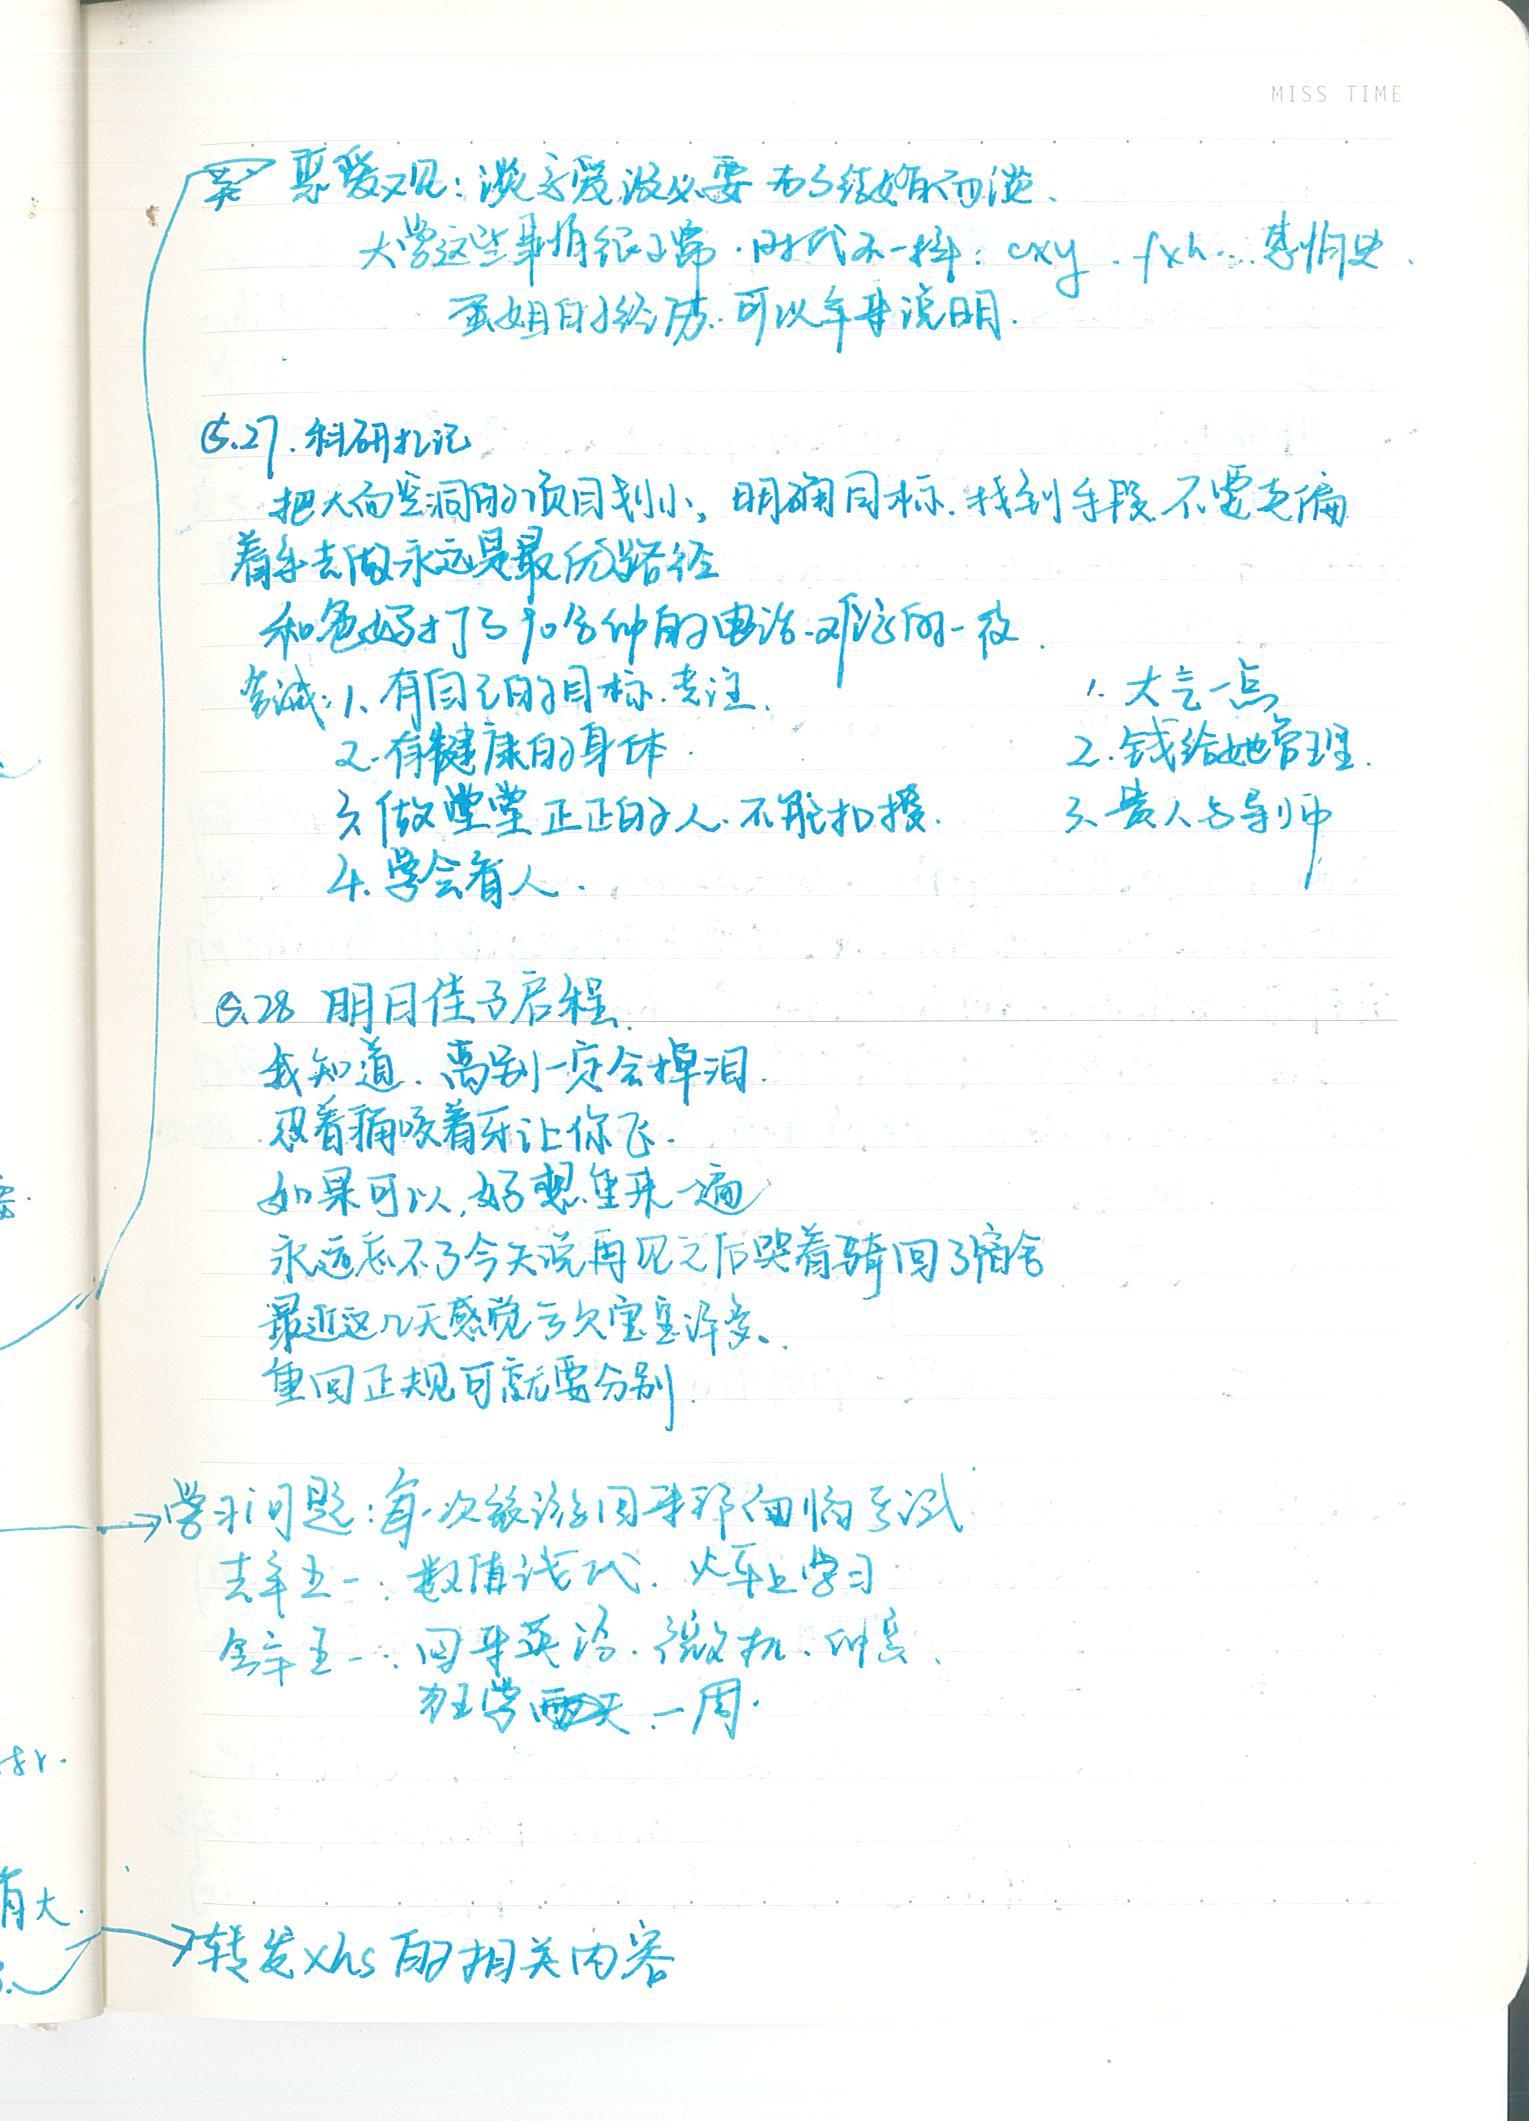 MISS TIME
恋爱观：谈恋爱没必要为了结婚而谈、
大学这些事情很正常．时代不一样：cxy．fxh…
姐的经历．可以拿来说明．
5.27．科研札记
把大而空洞的项目划小，明确目标．找到手段．不要走偏
着手去做永远是最优路径
和爸妈打了90分钟的电话．难忘的一夜．
告诫：1、有自己的目标．专注．
2．有健康的身体．
3、做堂堂正正的人．不能扣搜．
4、学会看人．
1、大气一点
2、钱给她管理．
3、贵人与导师
5.28 明日佳子启程．
我知道．离别一定会掉泪．
忍着痛咬着牙让你飞．
如果可以，好想重来一遍
永远忘不了今天说再见之后哭着骑回了宿舍
最近这几天感觉亏欠宝宝许多、
重回正规可就要分别．
→学习问题：每次旅游回来都面临考试
去年五一：数值线代．火车上学习
今年五一：回来英语．微机、仲裁、
狂学两天．一周．
有大．
→转发xhs的相关内容